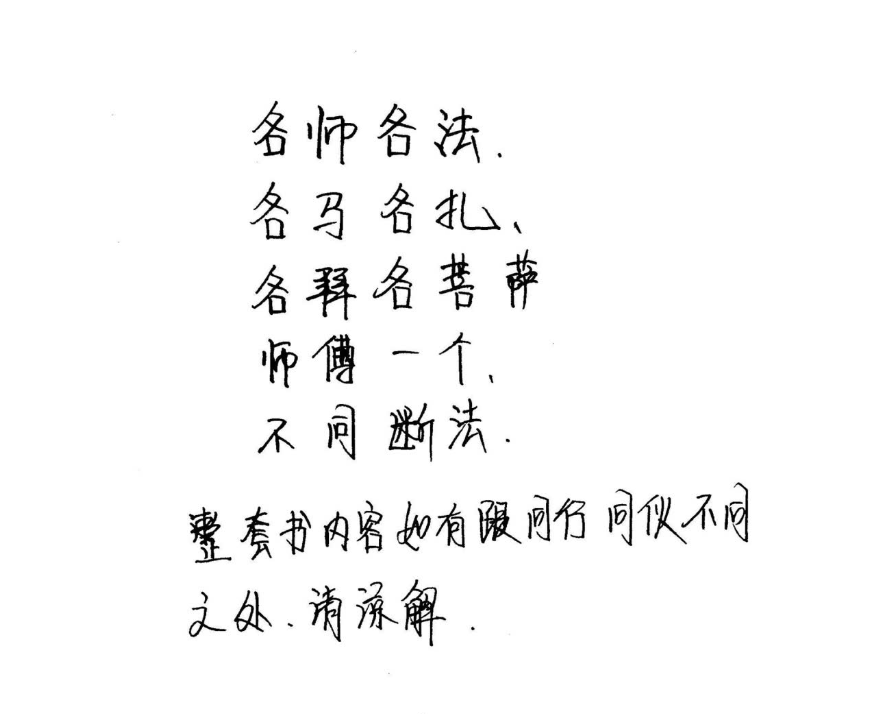 各师各法.
各马各扎、
各拜各菩萨
师傅一个、
不同断法.
整套书内容如有跟同行同仪不同
之处.请谅解.